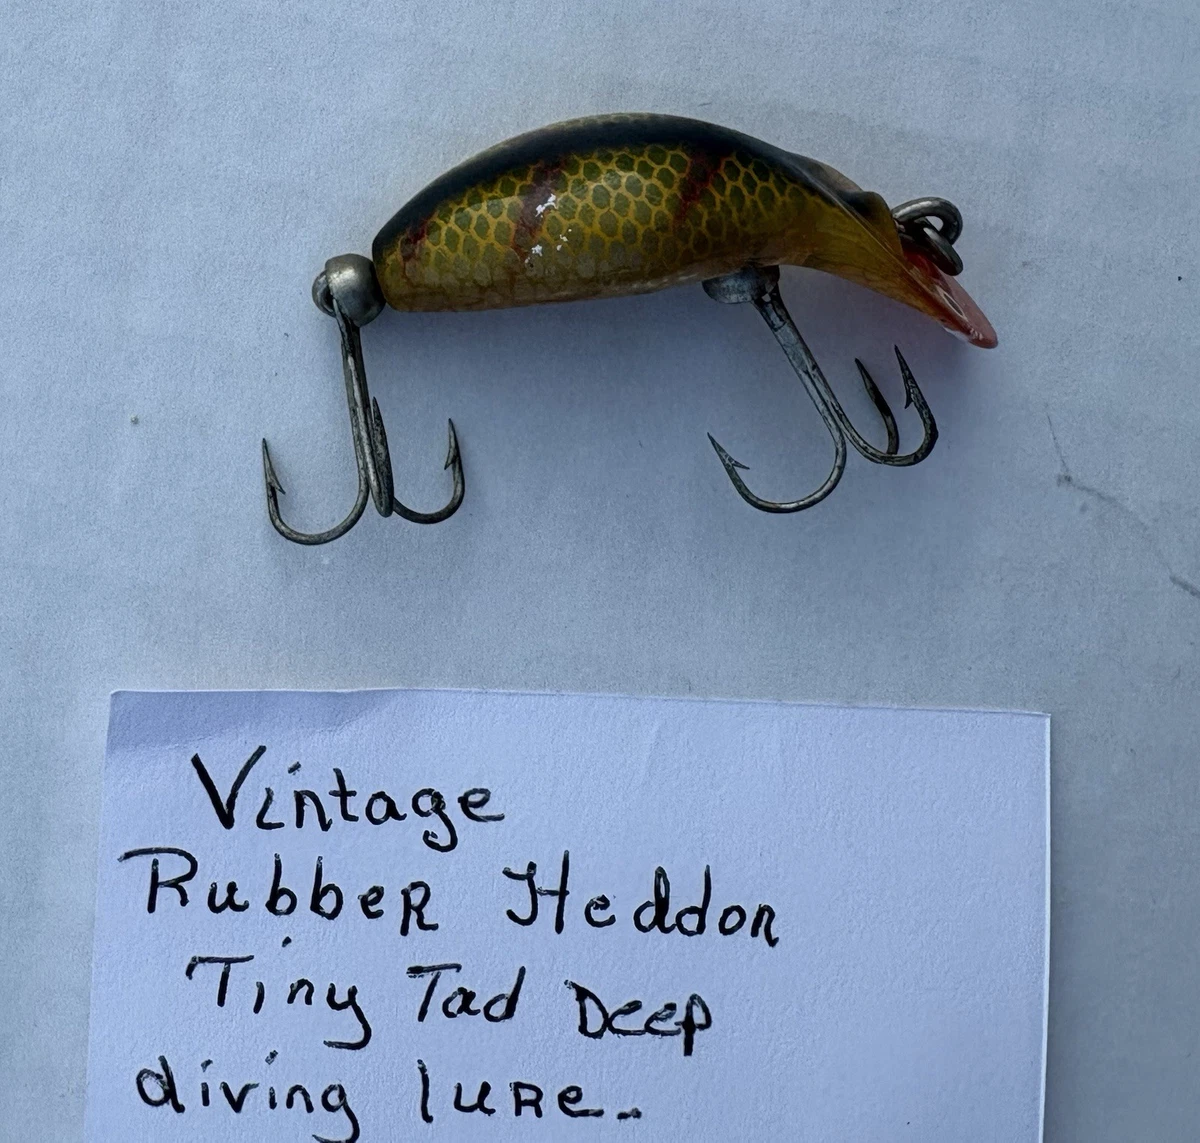 Vintage
Rubber Heddon
Tiny Tad Deep
diving lure.